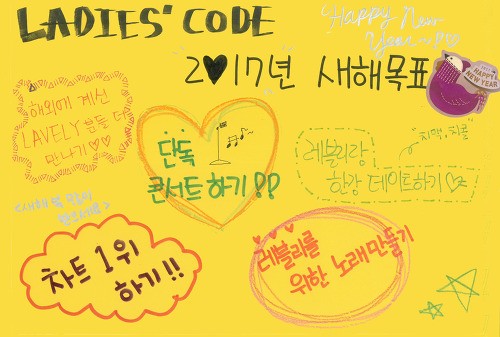 LADIES' CODE
Happy New
Year~!♡
2♥17년 새해목표
HAPPY
NEW YEAR
해외에 계신
LAVELY 분들 더
만나기♡♡
단독
콘서트 하기!!
레블리랑
치맥, 피콜
한강 데이트하기♡
<새해 복 많이
받으세요>
차트 1위
하기!!
레블리를
위한 노래만들기